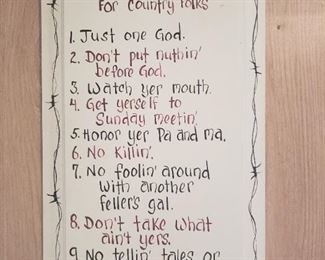 For Country Folks
1. Just one God.
2. Don't put nuthin'
before God.
3. Watch yer mouth.
4. Get yerself to
Sunday meetin'.
5. Honor yer Pa and ma.
6. No Killin'.
7. No foolin' around
with another
feller's gal.
8. Don't take what
ain't yers.
9. No tellin' tales or